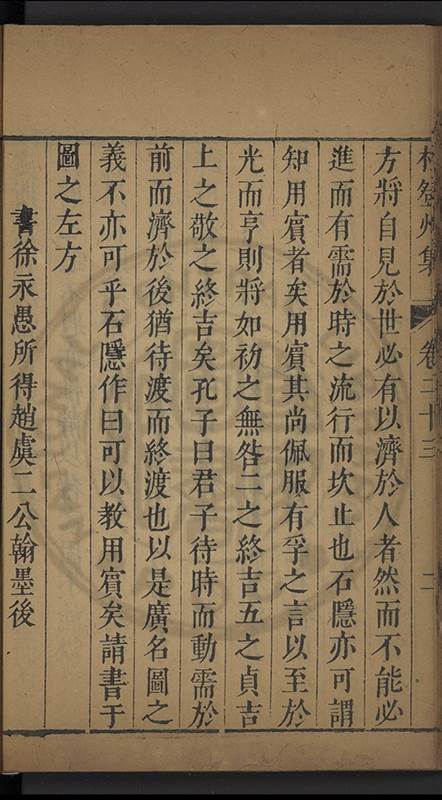 登州集 卷二十三 二
方將自見於世必有以濟於人者然而不能必
進而有需於時之流行而坎止也石隱亦可謂
知用賓者矣用賓其尚佩服有孚之言以至於
光而亨則將如初之無咎二之終吉五之貞吉
上之敬之終吉矣孔子曰君子待時而動需於
前而濟於後猶待渡而終渡也以是廣名圖之
義不亦可乎石隱作曰可以教用賓矣請書于
圖之左方
書徐永愚所得趙虞二公翰墨後